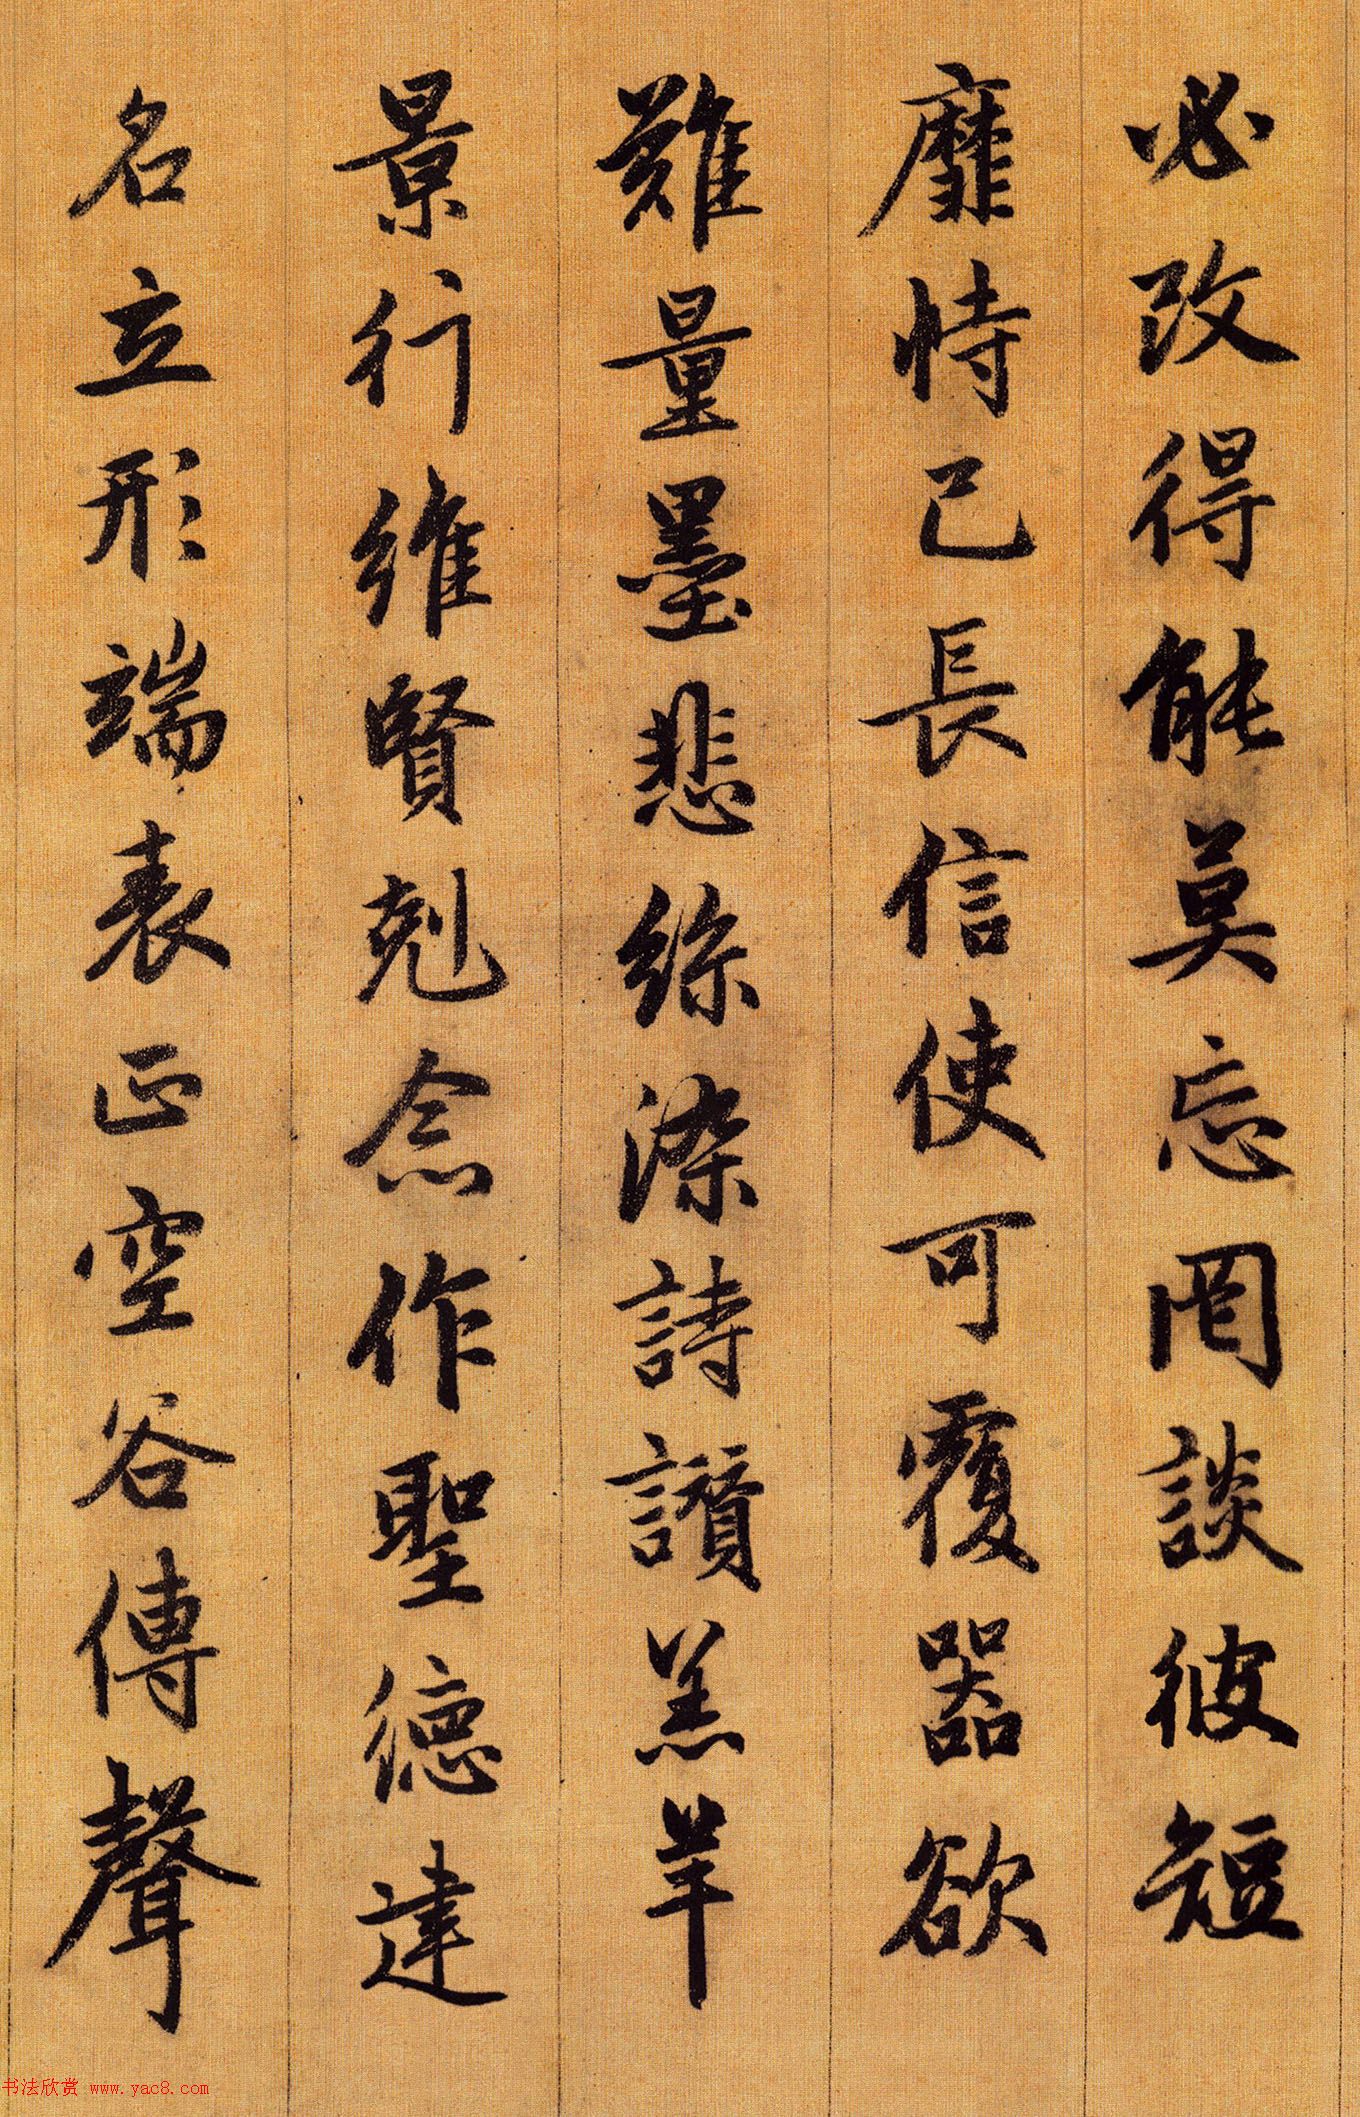 必改得能莫忘罔談彼短
靡恃己長信使可覆器欲
難量墨悲絲染詩讚羔羊
景行維賢剋念作聖德建
名立形端表正空谷傳聲
书法欣赏 www.yac8.com